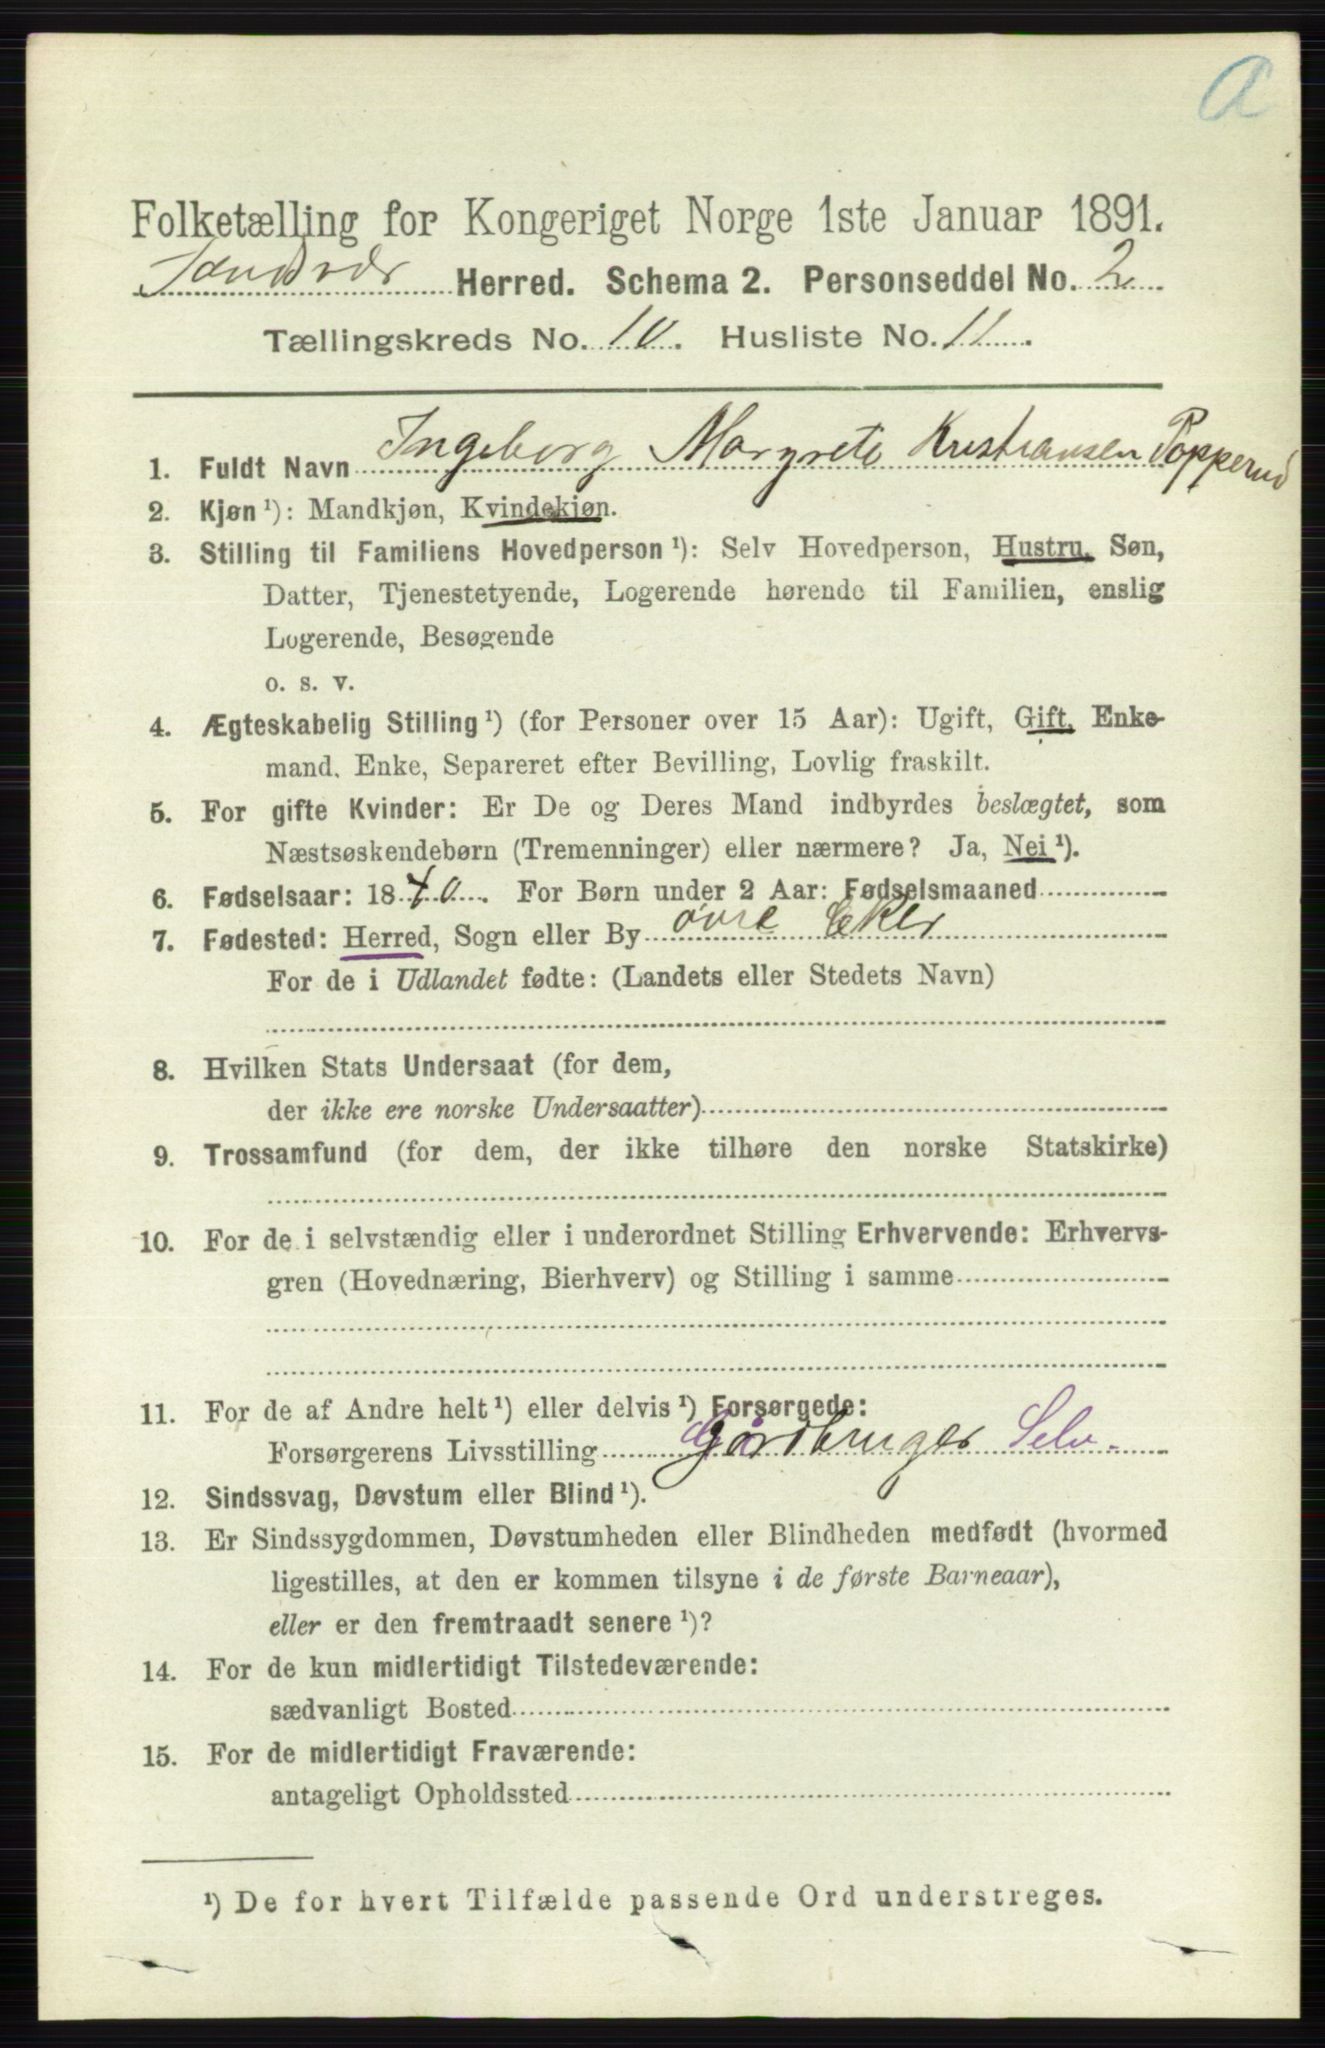 a
Folketælling for Kongeriget Norge 1ste Januar 1891.
Sandsvær Herred. Schema 2. Personseddel No. 2.
Tællingskreds No. 10. Husliste No. 11.
1. Fuldt Navn Ingeborg Margrete Kristiansen Popperud
2. Kjøn¹): Mandkjøn, Kvindekjøn.
3. Stilling til Familiens Hovedperson¹): Selv Hovedperson, Hustru, Søn,
Datter, Tjenestetyende, Logerende hørende til Familien, enslig
Logerende, Besøgende
o. s. v.
4. Ægteskabelig Stilling¹) (for Personer over 15 Aar): Ugift, Gift, Enke-
mand, Enke, Separeret efter Bevilling, Lovlig fraskilt.
5. For gifte Kvinder: Er De og Deres Mand indbyrdes beslægtet, som
Næstsøskendebørn (Tremenninger) eller nærmere? Ja, Nei¹).
6. Fødselsaar: 1840. For Børn under 2 Aar: Fødselsmaaned
7. Fødested: Herred, Sogn eller By øvre Eker
For de i Udlandet fødte: (Landets eller Stedets Navn)
8. Hvilken Stats Undersaat (for dem,
der ikke ere norske Undersaatter)
9. Trossamfund (for dem, der ikke tilhøre den norske Statskirke)
10. For de i selvstændig eller i underordnet Stilling Erhvervende: Erhvervs-
gren (Hovednæring, Bierhverv) og Stilling i samme
11. For de af Andre helt¹) eller delvis¹) Forsørgede:
Forsørgerens Livsstilling Gårdbruger Selv.
12. Sindssvag, Døvstum eller Blind¹).
13. Er Sindssygdommen, Døvstumheden eller Blindheden medfødt (hvormed
ligestilles, at den er kommen tilsyne i de første Barneaar),
eller er den fremtraadt senere¹)?
14. For de kun midlertidigt Tilstedeværende:
sædvanligt Bosted
15. For de midlertidigt Fraværende:
antageligt Opholdssted
¹) De for hvert Tilfælde passende Ord understreges.